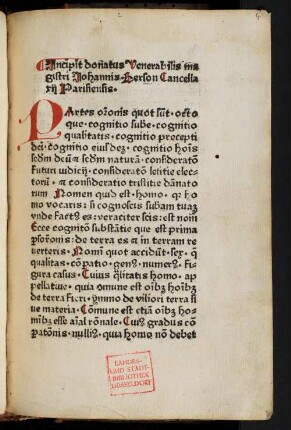 Incipit donatus Venerabilis ma
gistri Johannis Gerson Cancella
rij Parisiensis.
Partes oronis quot sūt. octo
que. cognitio sube. cognitio
qualitatis. cognitio precepti
dei. cognitio eiusdez. cognitio hoīs
scdm deū & scdm naturā. consideratō
futuri iudicij. consideratō letitie elec
torū. & consideratio tristitie dānato
rum. Nomen quid est. homo. qr ho
mo vocaris: si cognoscis subam tuaz
vnde factus es: veraciter scis: est nom̄
Ecce cognitō substātie que est prima
ps oronis: de terra es & in terram re
uerteris. Nomī quot accidūt. sex. q
qualitas. cōpatio. genus. numerus. Fi
gura casus. Cuius qlitatis homo. ap
pellatiue. quia omune est oībz hoībz
de terra fieri. ymmo de viliori terra si
ue materia. Comune est etiā oībz ho
nibz esse aīal rōnale. Cuius gradus cō
patōnis. nullius. quia homo nō debet
LANDES-
UND STADT-
BIBLIOTHEK
DÜSSELDORF